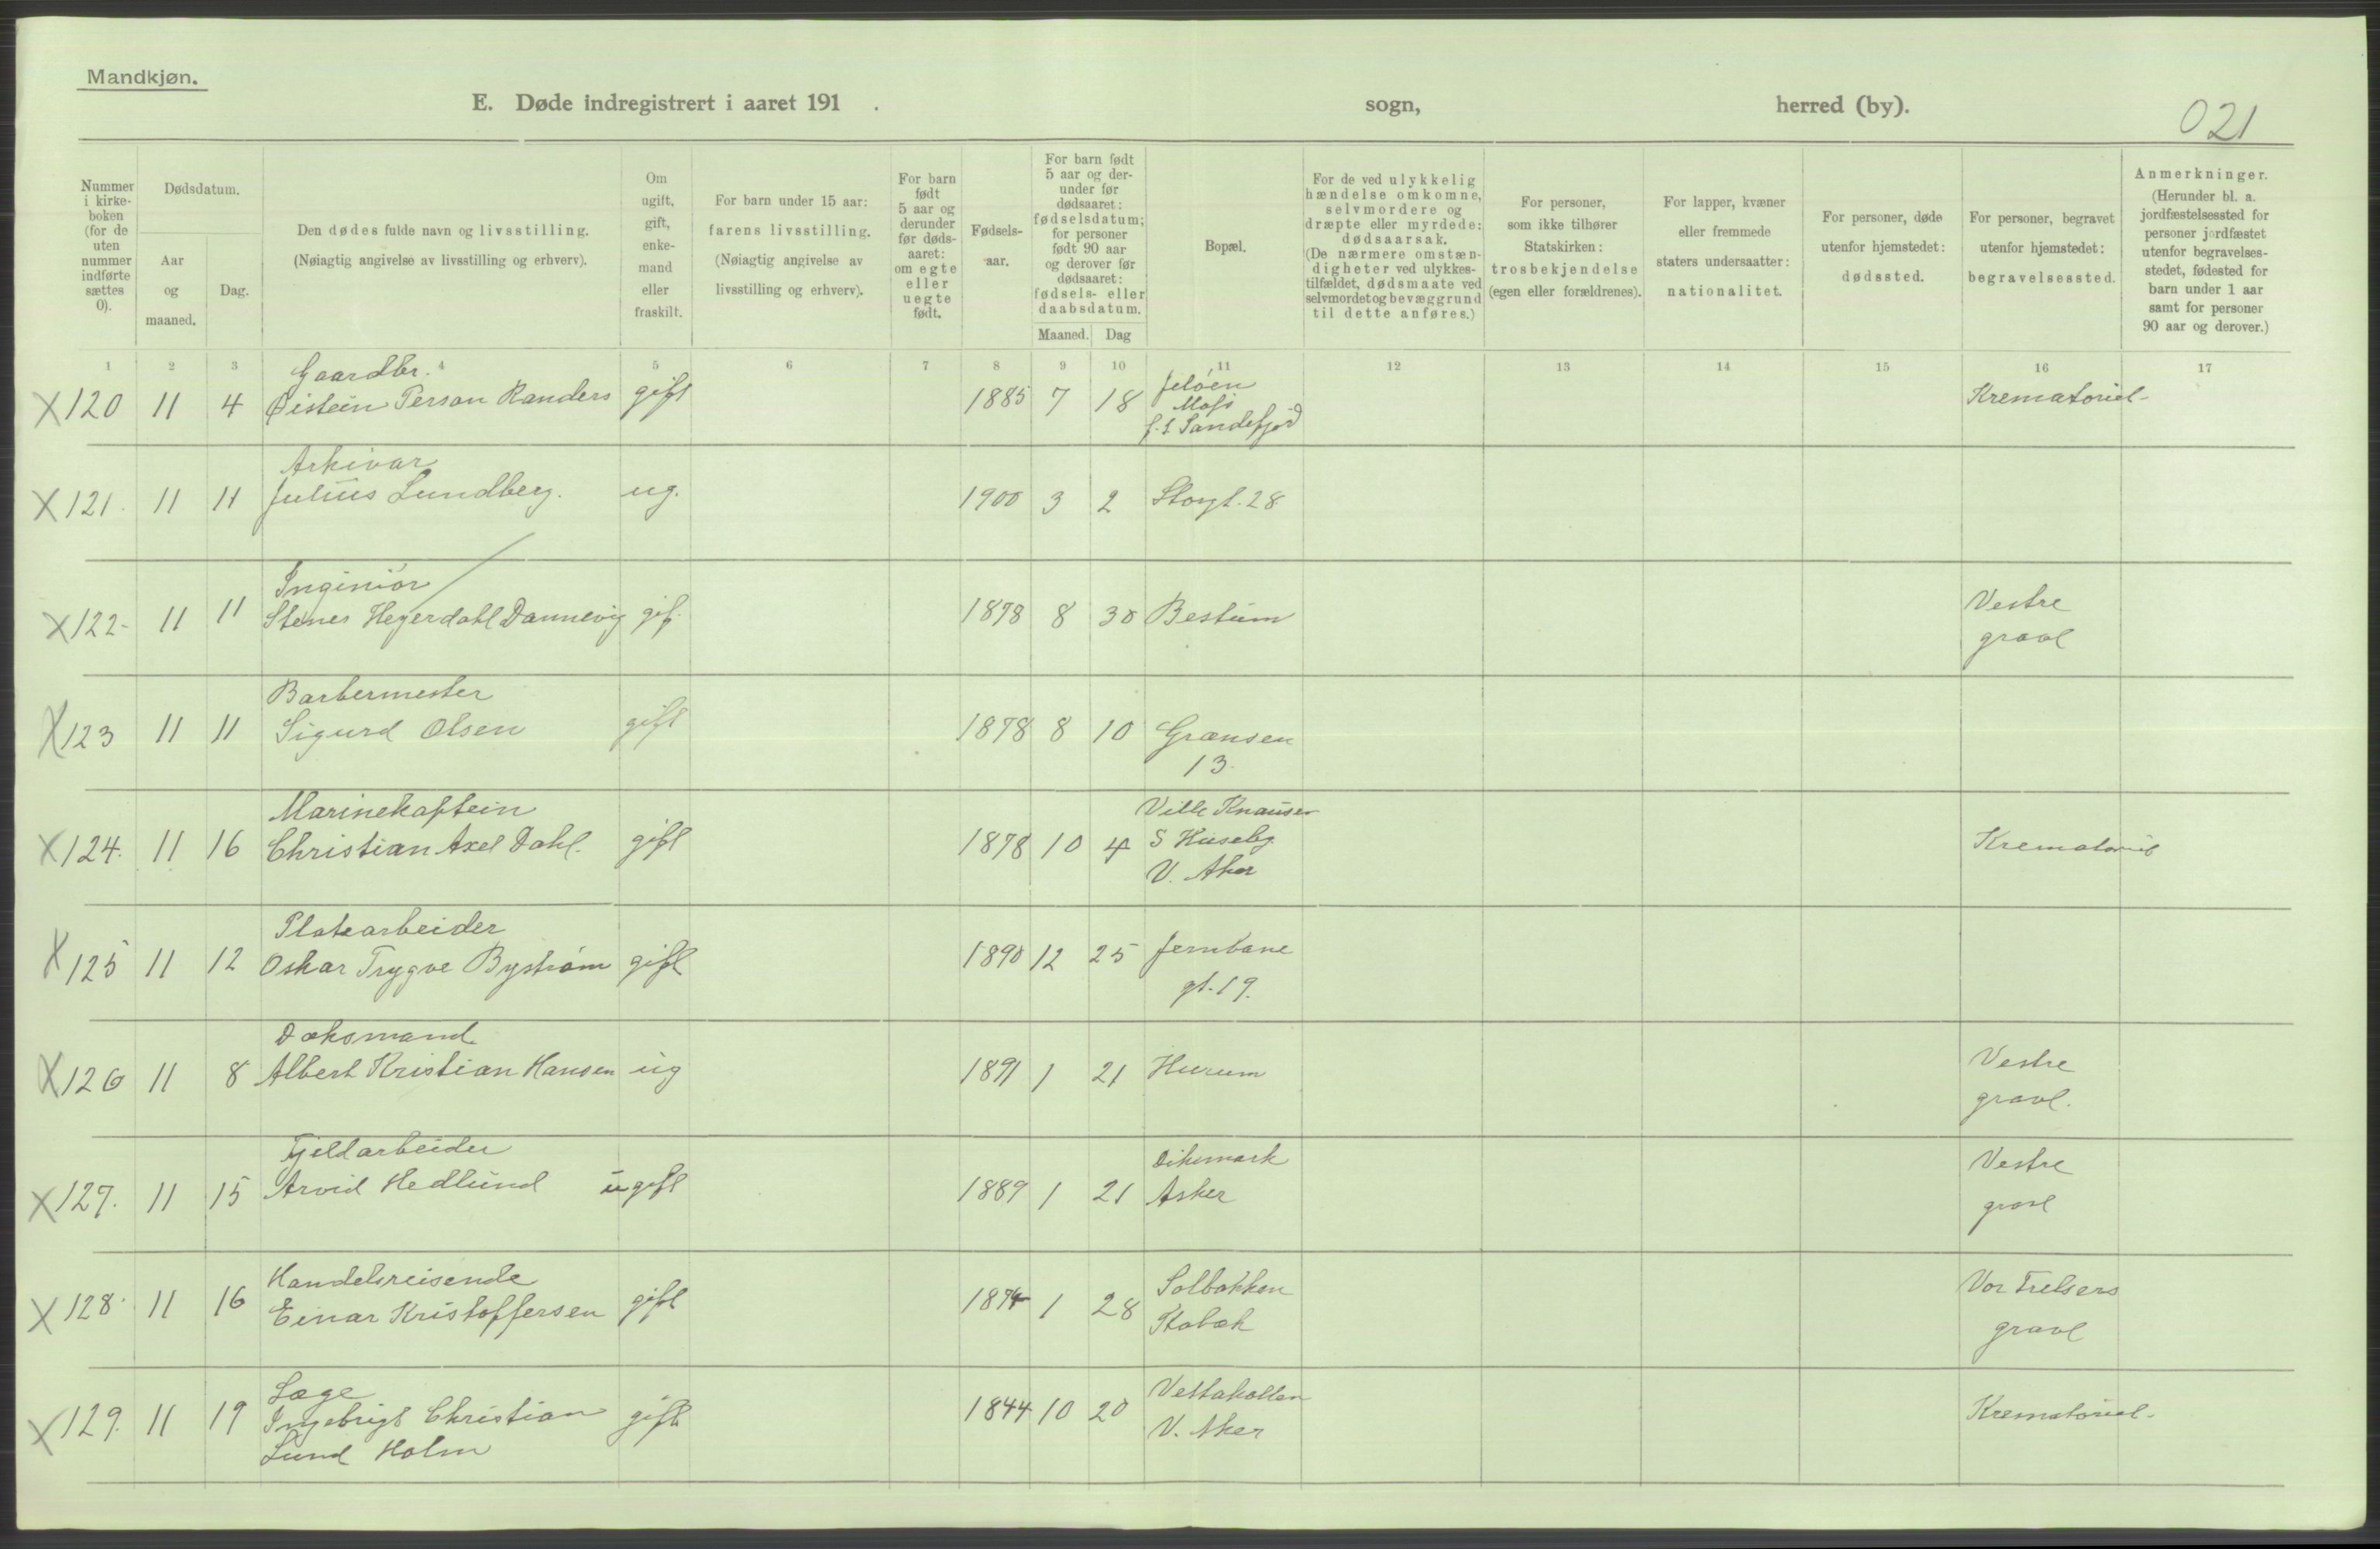 Mandkjøn.
E. Døde indregistrert i aaret 191 . sogn, herred (by).
021
Nummer i kirke-boken (for de uten nummer indførte sættes 0).
Dødsdatum.
Aar og maaned.
Dag.
Den dødes fulde navn og livsstilling.
(Nøiagtig angivelse av livsstilling og erhverv).
Om ugift, gift, enke-mand eller fraskilt.
For barn under 15 aar: farens livsstilling.
(Nøiagtig angivelse av livsstilling og erhverv).
For barn født 5 aar og derunder før døds-aaret: om egte eller uegte født.
Fødsels-aar.
For barn født 5 aar og der-under før dødsaaret: fødselsdatum; for personer født 90 aar og derover før dødsaaret: fødsels- eller daabsdatum.
Maaned. Dag
Bopæl.
For de ved ulykkelig hændelse omkomne, selvmordere og dræpte eller myrdede: dødsaarsak.
(De nærmere omstæn-digheter ved ulykkes-tilfældet, dødsmaate ved selvmordet og bevæggrund til dette anføres.)
For personer, som ikke tilhører Statskirken: trosbekjendelse (egen eller forældrenes).
For lapper, kvæner eller fremmede staters undersaatter: nationalitet.
For personer, døde utenfor hjemstedet: dødssted.
For personer, begravet utenfor hjemstedet: begravelsessted.
Anmerkninger.
(Herunder bl. a. jordfæstelsessted for personer jordfæstet utenfor begravelses-stedet, fødested for barn under 1 aar samt for personer 90 aar og derover.)
1 2 3 4 5 6 7 8 9 10 11 12 13 14 15 16 17
Gaardbr. Jeløen
X 120 11 4 Øistein Person Randers gift 1885 7 18 Moss Krematoriet
f. i. Sandefjord
Arkivar
X 121. 11 11 Julius Lundberg. ug. 1900 3 2 Storgt. 28
Inginiør
X 122- 11 11 Stener Heyerdahl Dannevig gif. 1878 8 30 Bestum Vestre
gravl
Barbermester
X 123 11 11 Sigurd Olsen gift 1878 8 10 Grænsen
13.
Marinekaptein Ville Knauser
X 124. 11 16 Christian Axel Dahl. gift 1878 10 4 S Huseby Krematoriet
V. Aker
Platearbeider
X 125 11 12 Oskar Trygve Bystrøm gift 1890 12 25 Jernbane
gt. 19.
Dæksmand Vestre
X 126 11 8 Albert Kristian Hansen ug 1891 1 21 Hurum gravl.
Fjeldarbeider Dikemark Vestre
X 127. 11 15 Arvid Hedlund ugift 1889 1 21 Asker gravl
Handelsreisende Solbakken Vor Frelsers
X 128. 11 16 Einar Kristoffersen gift 1874 1 28 Stabæk gravl
Læge Vettakollen
X 129. 11 19 Ingebrigt Christian gift 1844 10 20 V. Aker Krematoriet.
Lund Holm